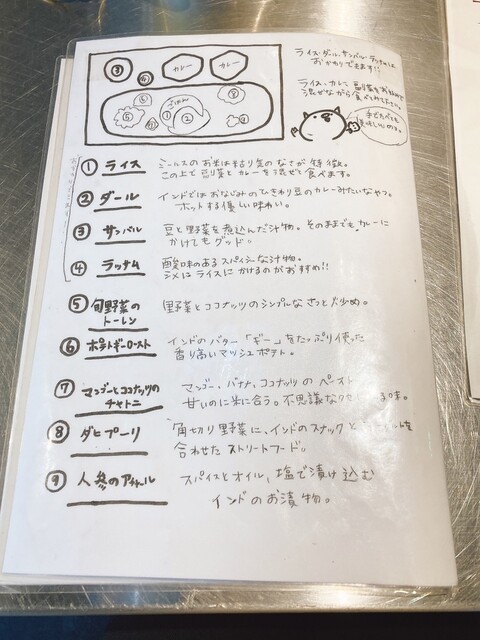 ライス・ダール・サンバル・ラッサムは
おかわりできます!!
ライス・カレーに副菜をお好みで
混ぜながら食べてみてください。
手で食べても
美味しいのよ。
③
④
カレー
カレー
ごはん
①
②
① ライス
ミールスのお米は粘り気のなさが特徴。
この上で副菜とカレーを混ぜて食べます。
② ダール
インドではおなじみのひきわり豆のカレーみたいなやつ。
ホットする優しい味わい。
③ サンバル
豆と野菜を煮込んだ汁物。そのままでもカレーに
かけてもグッド。
④ ラッサム
酸味のあるスパイシーな汁物。
シメはライスにかけるのがおすすめ!!
⑤ 旬野菜の
トーレン
野菜とココナッツのシンプルなさっと炒め。
⑥ ポテトギーロースト
インドのバター「ギー」をたっぷり使った
香り高いマッシュポテト。
⑦ マンゴーとココナッツの
チャトニ
マンゴー、バナナ、ココナッツのペースト
甘いのに米に合う。不思議な 味。
⑧ ダヒプーリ
角切り野菜に、インドのスナックと
合わせたストリートフード。
⑨ 人参のアチャール
スパイスとオイル、塩で漬け込む
インドのお漬物。